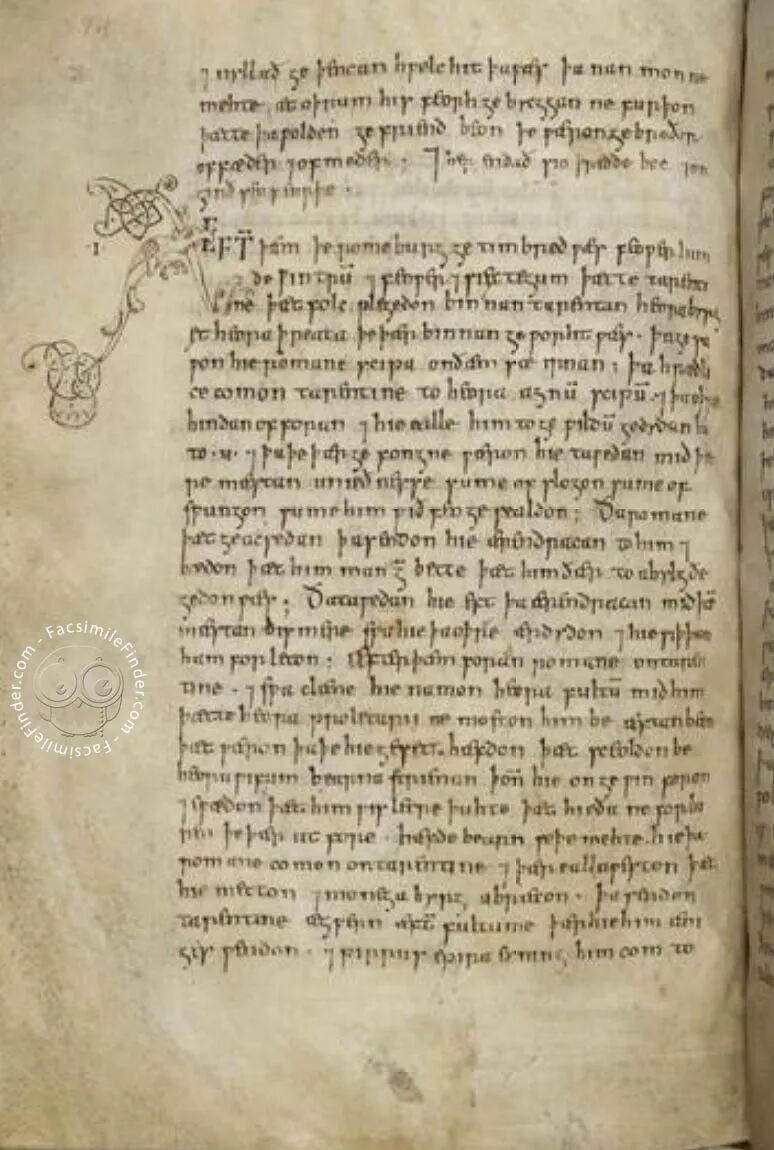 ⁊ willað geþencan hwelc hit þa wæs þa nan mon ne
mehte æt oþrum his feorh gebycggan ne furþon
þætte þa wolden gefriend beon þe wæron gebroðor
of fæder ⁊ of meder; ⁊ her endað sio þridde boc ⁊ on
ginð seo feorþe.
I
ÆFT̄ þæm þe romeburg getimbred wæs feower hun
de wintrū ⁊ feower ⁊ siextegum þætte tarenti
ne þæt folc plegedon binnan tarentan heora byrg
æt heora þeatra þe þær binnan geworht wæs. þa gesa
won hie romane scipa on ðæm sæ irnan; þa hrædli
ce comon tarentine to heora agnū scipū. ⁊ þa oþre
hindan offoran ⁊ hie ealle him to gewildū gedydan bu
to .u. ⁊ þa þe þær gefongne wæron hie tawedan mid þæ
re mæstan unieðnesse sume ofslogon sume of
swungon sume him wið feo gesealdon; Ða romane
þæt geacsedan þa sendon hie ærendracan to him ⁊
bædon þæt him man gebette þæt him ðær to abylgðe
gedon wæs; Ða tawedan hie eft þa ærendracan mid þǣ
mæstan bismere swa hie þa oþre ær dydon ⁊ hie siþþan
ham forleton; Æfter þæm foran romane on taren
tine. ⁊ swa clæne hie namon heora fultū mid him
þætte heora proletarii ne moston him beæftan beon
þæt wæron þa þe hie gesett hæfdon þæt sceoldon be
heora wifum bearna strienan þoñ hie on gewin foron
⁊ cwædon þæt him wislecre þuhte þæt hie ða ne forlu
ren þe þær ut fore. hæfde bearn se þe mehte. hie þa
romane comon on tarentine ⁊ þær eall awestton þæt
hie metton ⁊ monega byrg abræcon. þa sendon
tarentine æghwern æft̄ fultume þær hie him æni
ges wendon. ⁊ pirrus epira cyning him com to